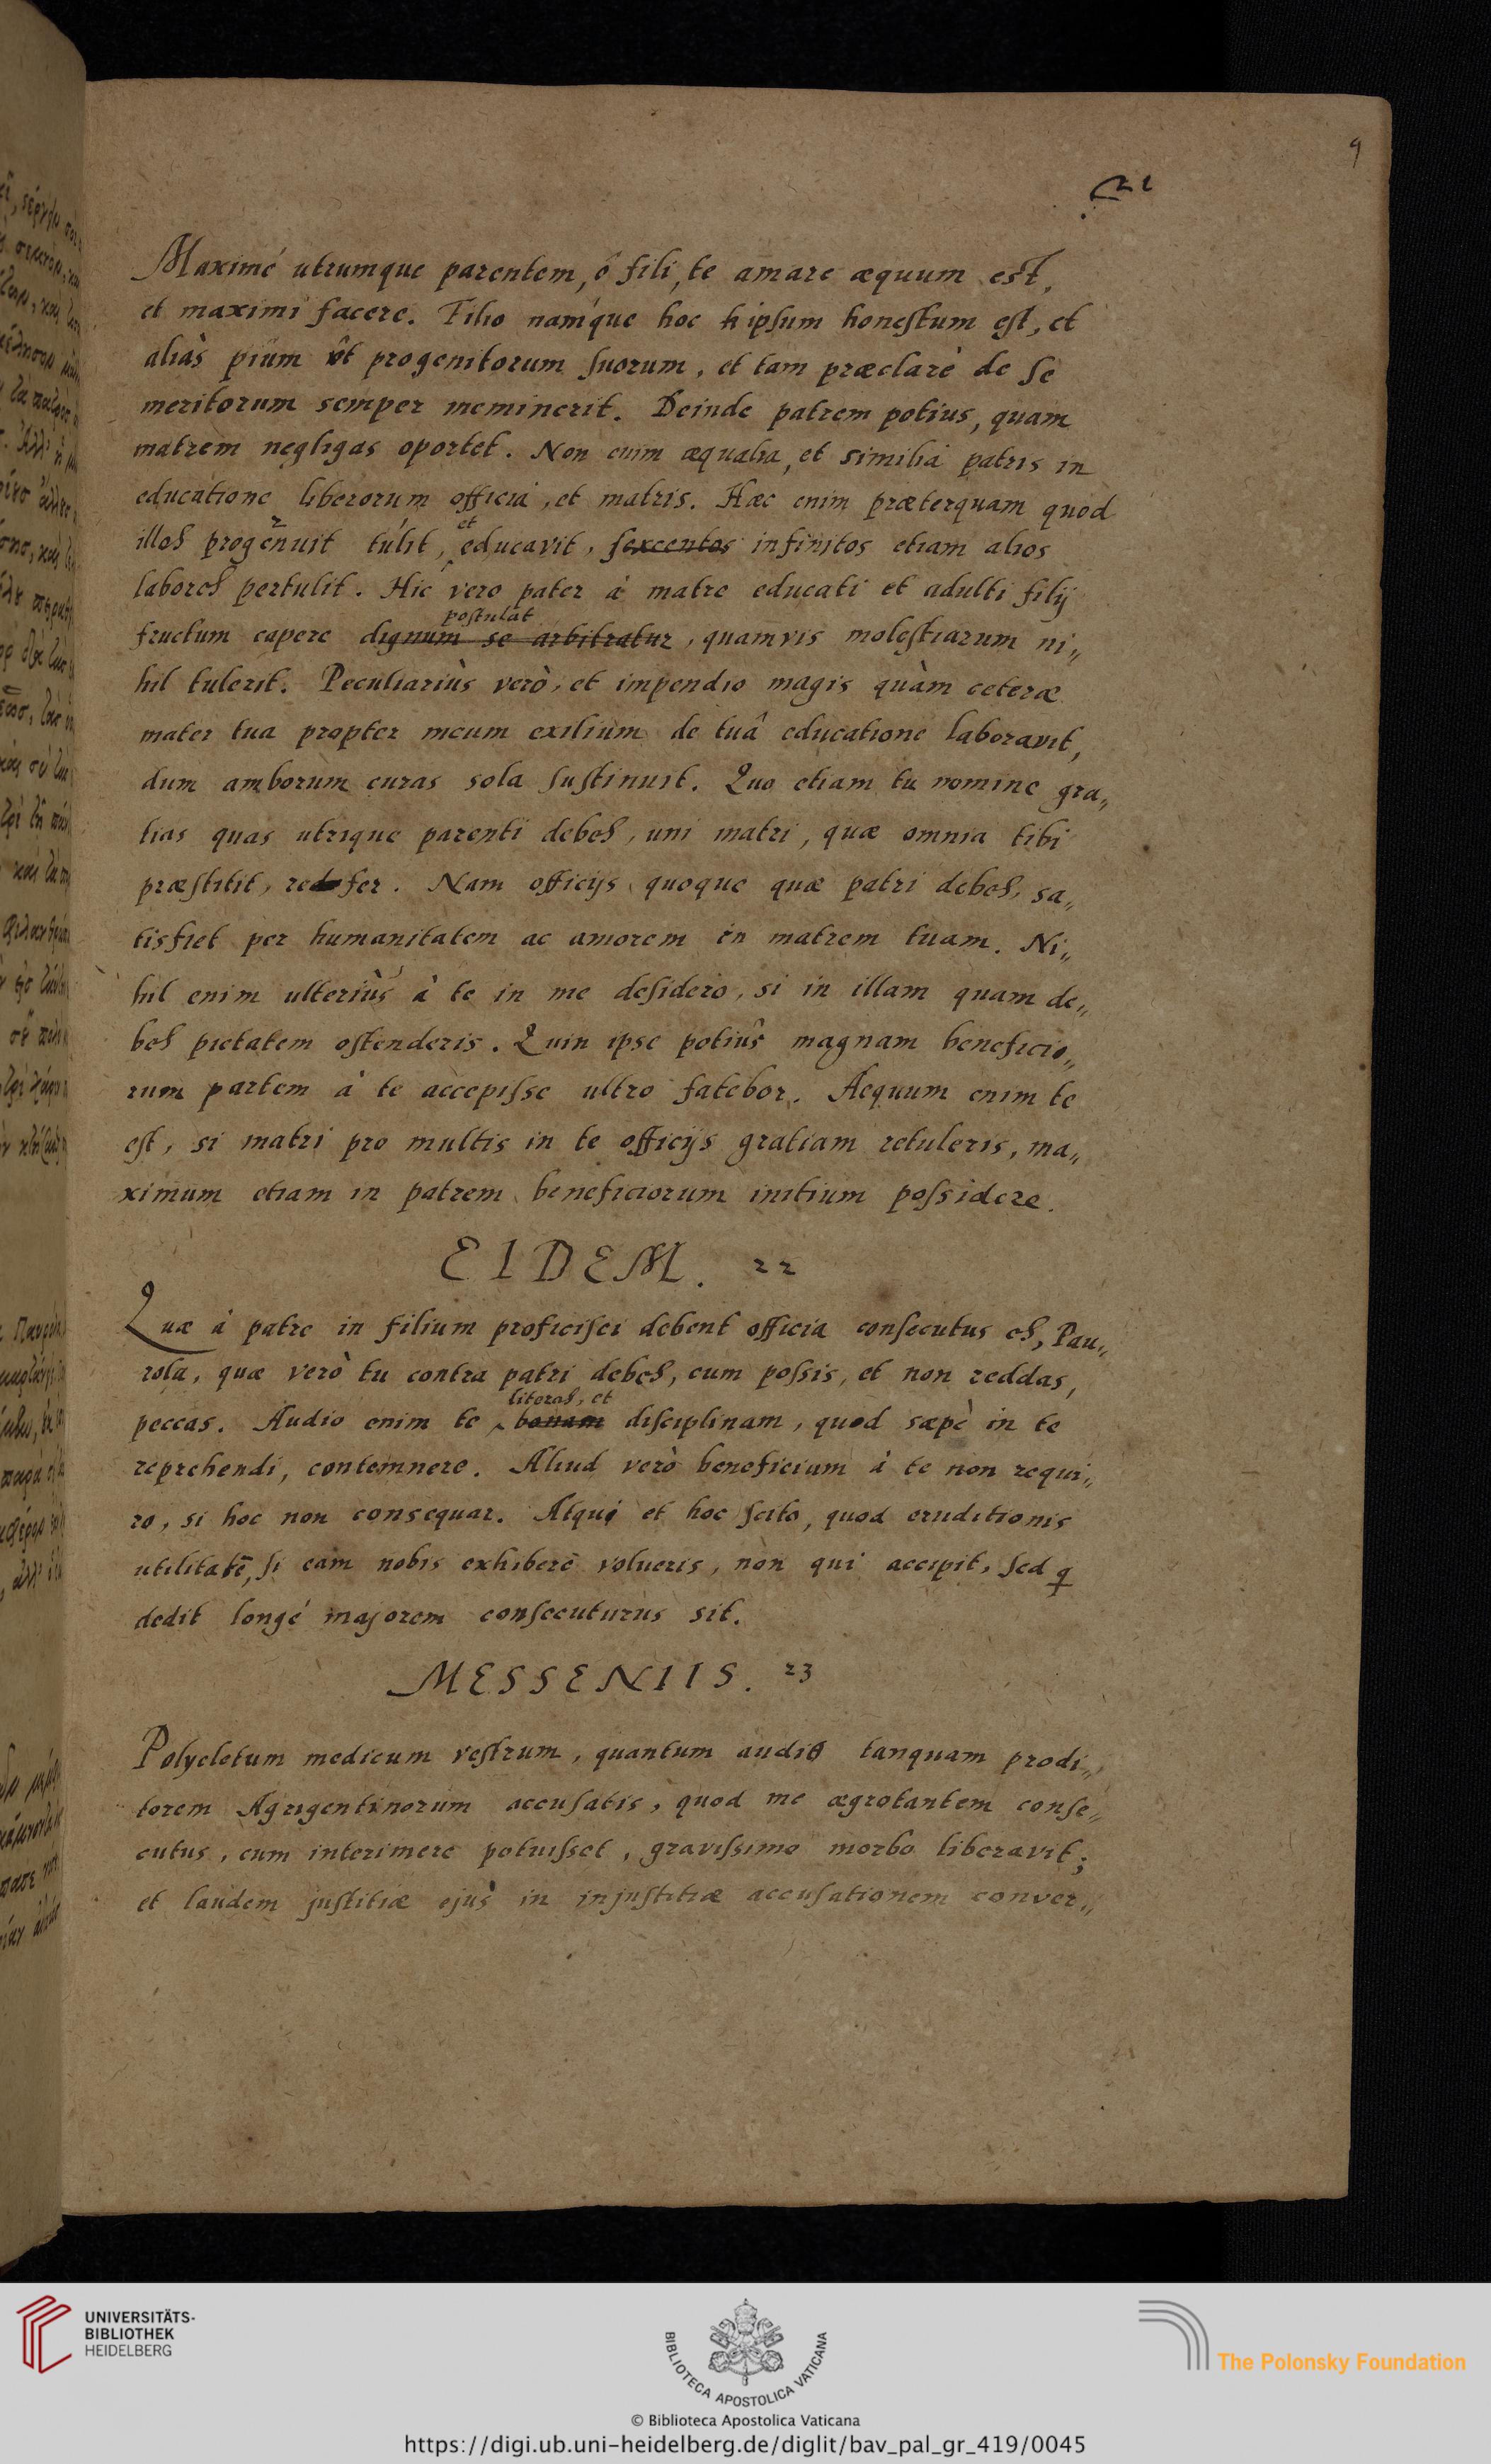 9
21
Maximé utrumque parentem, ô fili, te amare æquum est,
et maximi facere. Filio namque hoc ipsum honestum est, et
aliàs pium ut progenitorum suorum, et tam præclarè de se
meritorum semper meminerit. Deinde patrem potius, quam
matrem negligas oportet. Non enim æqualia, et similia patris in
educatione liberorum officia, et matris. Hæc enim præterquam quod
et
illos progenuit tulit, educavit, sexcentos infinitos etiam alios
labores pertulit. Hic vero pater à matre educati et adulti filij
postulat
fructum capere dignum se arbitratur, quamvis molestiarum ni„
hil tulerit. Peculiariùs verò, et impendio magis quàm ceteræ
mater tua propter meum exilium de tuâ educatione laboravit,
dum amborum curas sola sustinuit. Quo etiam tu nomine gra„
tias quas utrique parenti debes, uni matri, quæ omnia tibi
præstitit, refer. Nam officijs quoque quæ patri debes, sa„
tisfiet per humanitatem ac amorem in matrem tuam. Ni„
hil enim ulteriùs à te in me desidero, si in illam quam de„
bes pietatem ostenderis. Quin ipse potiùs magnam beneficio„
rum partem à te accepisse ultro fatebor. Aequum enim te
est, si matri pro multis in te officijs gratiam retuleris, ma„
ximum etiam in patrem beneficiorum initium possidere.
EIDEM. 22
Quæ à patre in filium proficisci debent officia consecutus es, Pau„
rola, quæ verò tu contra patri debes, cum possis, et non reddas,
literas, et
peccas. Audio enim te bonam disciplinam, quod sæpè in te
reprehendi, contemnere. Aliud verò beneficium à te non requi„
ro, si hoc non consequar. Atqui et hoc scito, quod eruditionis
utilitatē, si eam nobis exhibere volueris, non qui accipit, sed q
dedit longé majorem consecuturus sit.
MESSENIIS. 23
Polycletum medicum vestrum, quantum audio tanquam prodi„
torem Agrigentinorum accusatis, quod me ægrotantem conse„
cutus, cum interimere potuisset, gravissimo morbo liberavit;
et laudem justitiæ ejus in injustitiæ accusationem conver„
UNIVERSITÄTS-
BIBLIOTHEK
HEIDELBERG
BIBLIOTECA APOSTOLICA VATICANA
The Polonsky Foundation
© Biblioteca Apostolica Vaticana
https://digi.ub.uni-heidelberg.de/diglit/bav_pal_gr_419/0045